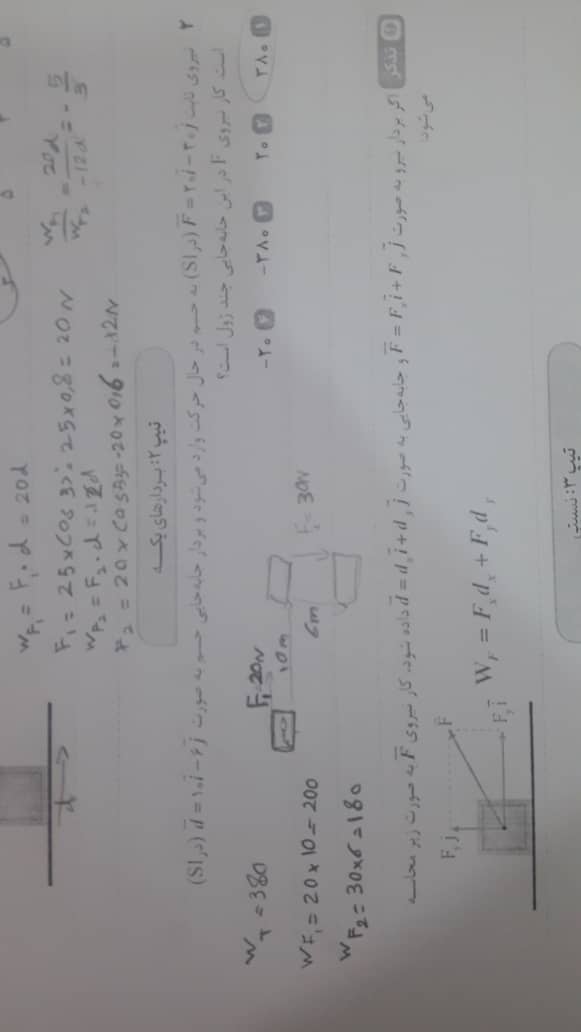 W_F₁ = F₁ · d = 20d
F₁ = 25 × cos 37 = 25 × 0,8 = 20 N
W_F₂ = F₂ · d = -12d
F₂ = 20 × cos 53 = -20 × 0,6 = -12N
W_F₁ / W_F₂ = 20d / -12d = - 5/3
d
تیپ ۲: بردارهای یکه
۲ نیروی ثابت F = ۲۰i - ۳۰j (در SI) به جسم در حال حرکت وارد می‌شود و بردار جابه‌جایی جسم به صورت d = ۱۰i - ۶j (در SI)
است کار نیروی F در این جابه‌جایی چند ژول است؟
۱ ۳۸۰ ۲ ۲۰ ۳ -۳۸۰ ۴ -۲۰
W_T = 380
F₁=20N
جسم
10m
6m
F₂ = 30N
W F₁ = 20 × 10 = 200
W F₂ = 30×6 = 180
تذکر اگر بردار نیرو به صورت F = Fₓi + Fᵧj و جابه‌جایی به صورت d = dₓi + dᵧj داده شود، کار نیروی F به صورت زیر محاسبه
می‌شود:
Fᵧj
F
Fₓi
W_F = Fₓdₓ + Fᵧdᵧ
تیپ ۳: نسبتی